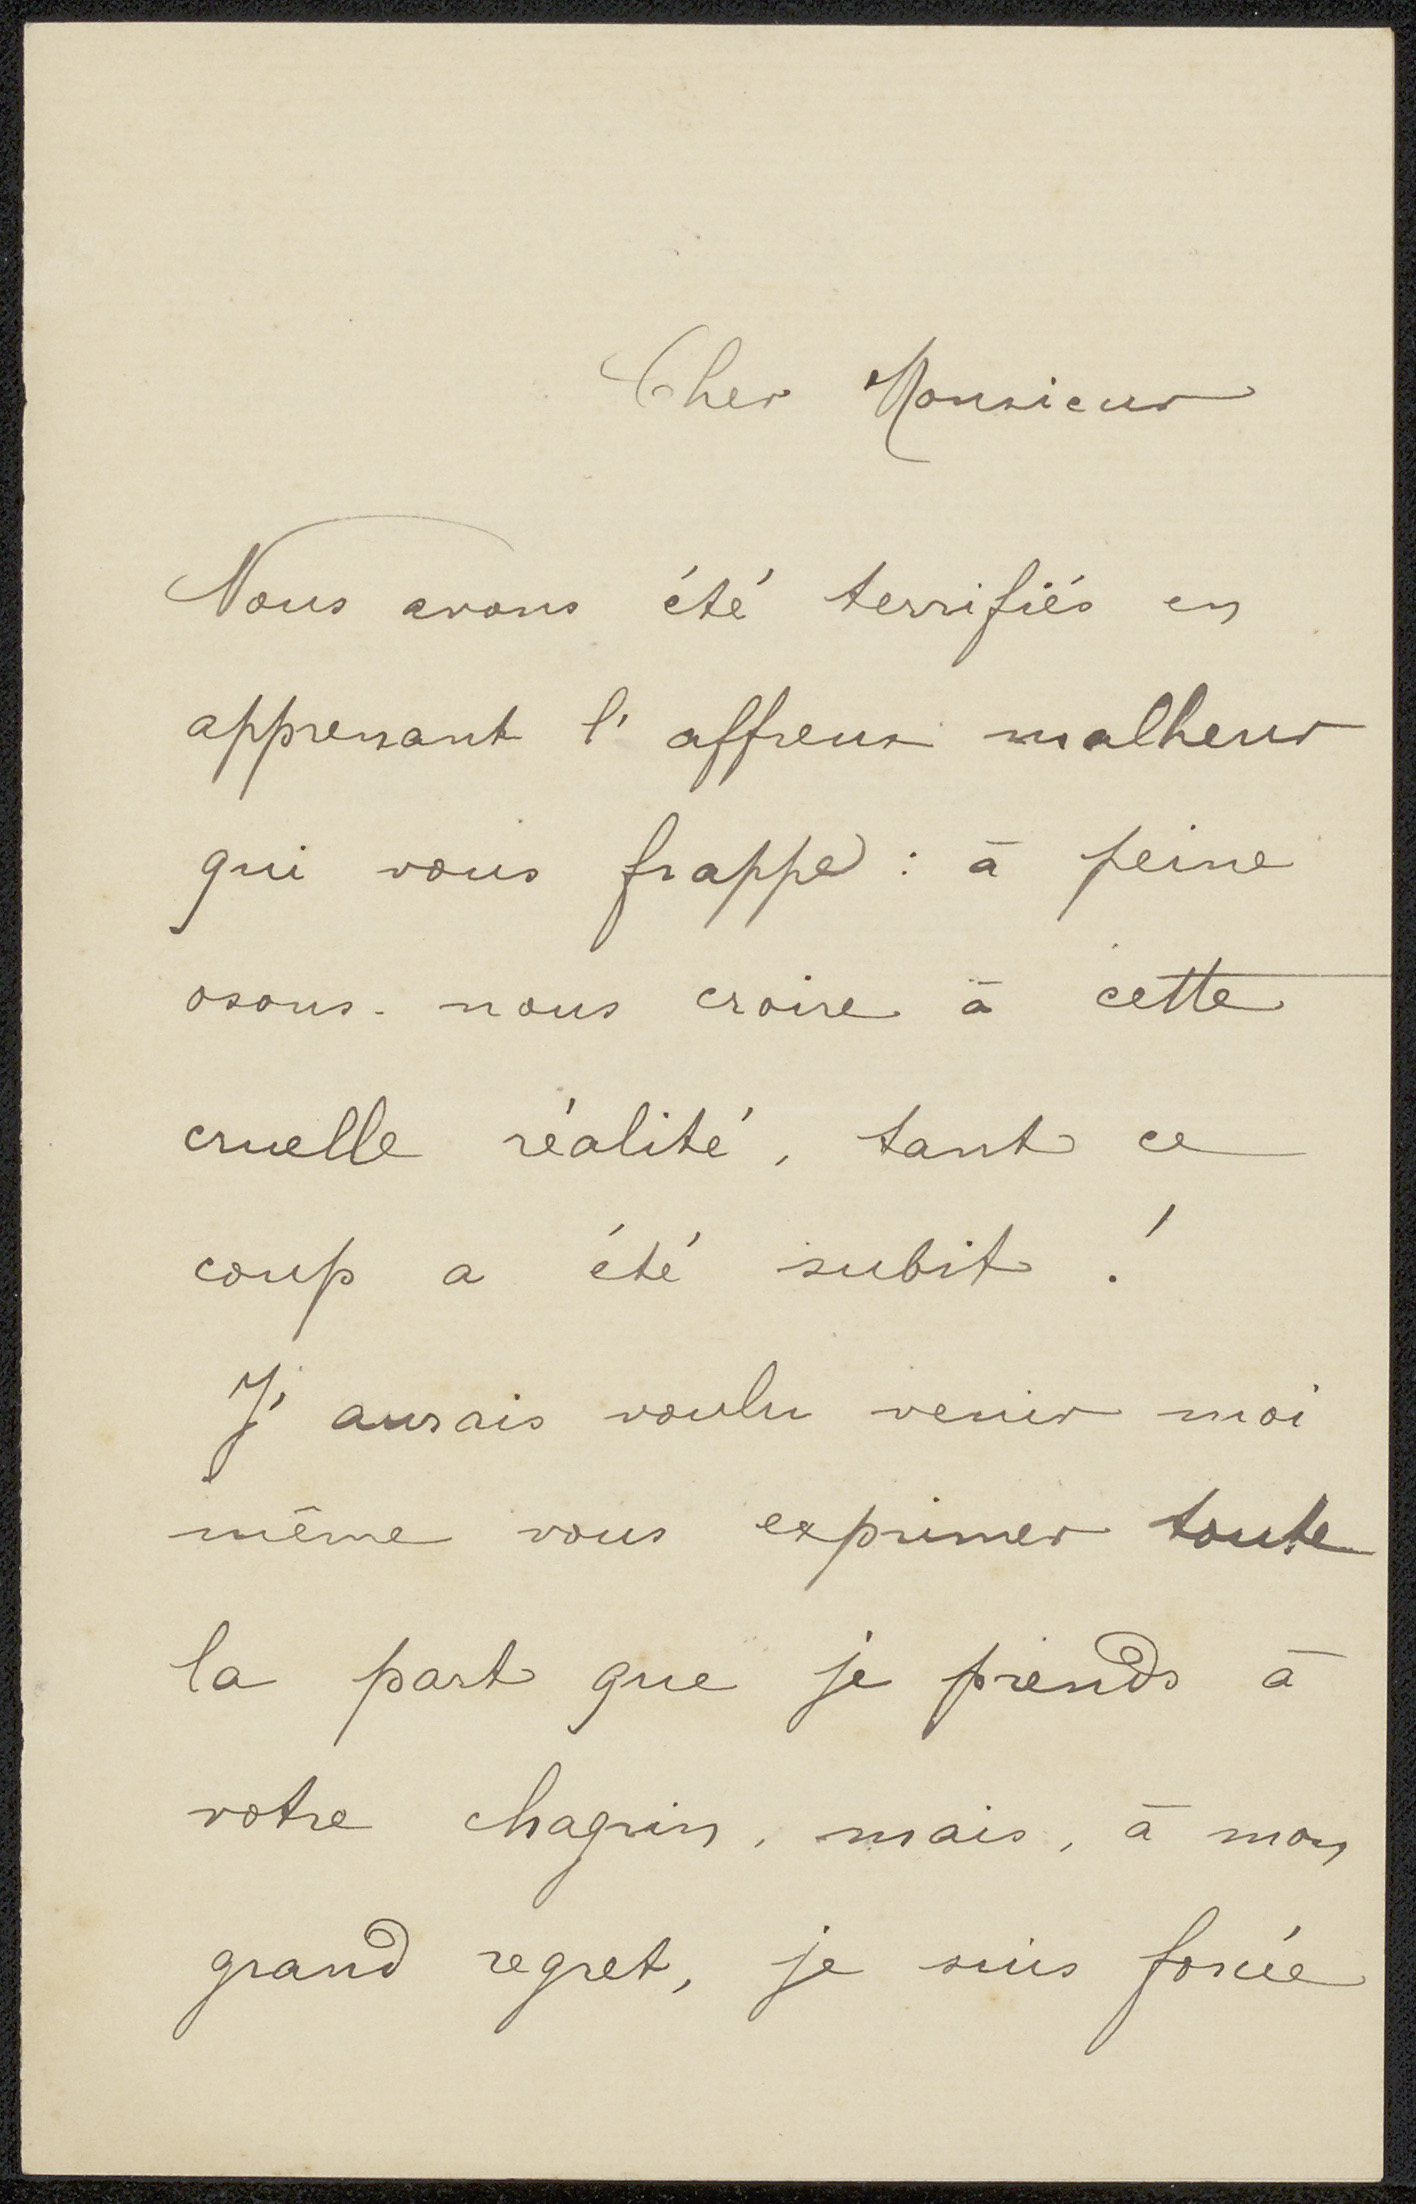 Cher Monsieur
Nous avons été terrifiés en
apprenant l'affreux malheur
qui vous frappe : à peine
osons-nous croire à cette
cruelle réalité, tant ce
coup a été subit !
J'aurais voulu venir moi
même vous exprimer toute
la part que je prends à
votre chagrin, mais, à mon
grand regret, je suis forcée